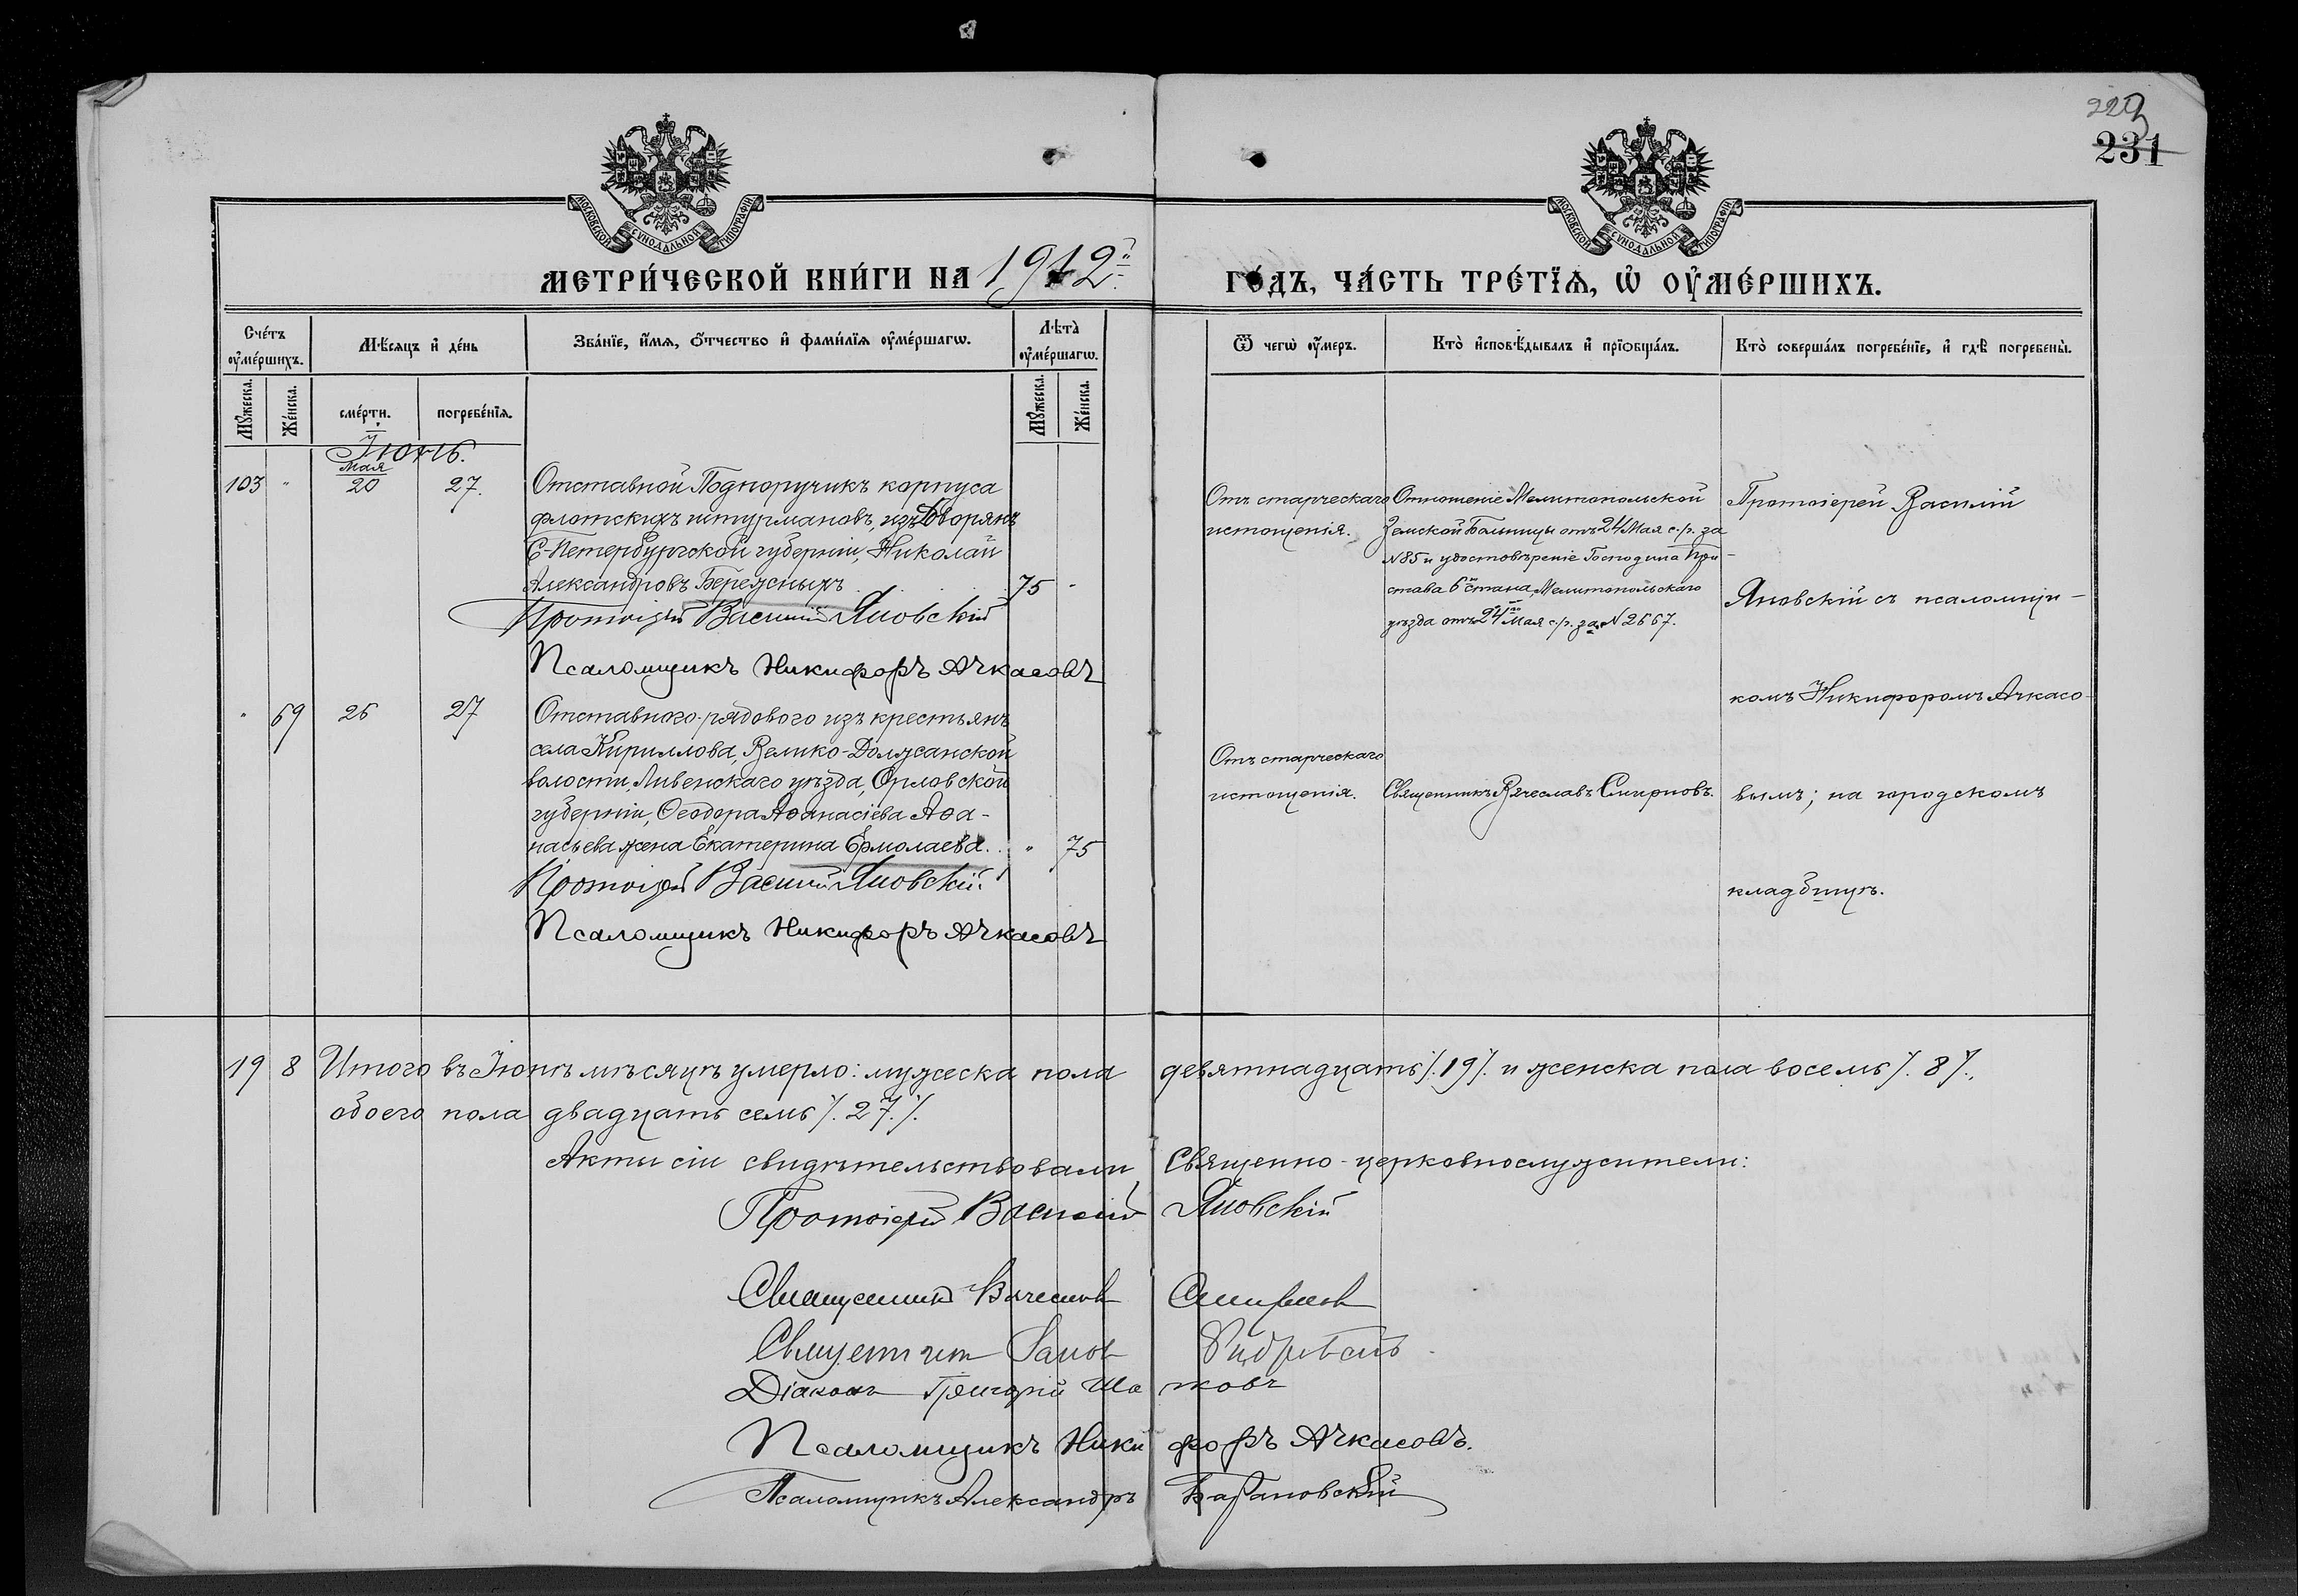 229
231
МОСКОВСКОЙ СѴНОДАЛЬНОЙ ТИПОГРАФІИ
МОСКОВСКОЙ СѴНОДАЛЬНОЙ ТИПОГРАФІИ
МЕТРИ́ЧЕСКОЙ КНИ́ГИ НА 1912й
ГО́ДЪ, ЧА́СТЬ ТРЕ́ТЇѦ, Ѡ҆ ОУ҆МЕ́РШИХЪ.
Сче́тъ оу҆ме́ршихъ.
Мѣ́сяцъ и҆ де́нь
Зва́нїе, и҆́мѧ, ѻ҆́тчество и҆ фами́лїѧ оу҆ме́ршагѡ.
Лѣ́та̀ оу҆ме́ршагѡ.
Ѿ чегѡ̀ оу҆́меръ.
Кто̀ и҆сповѣ́дывалъ и҆ прїѡбща́лъ.
Кто̀ соверша́лъ погребе́нїе, и҆ гдѣ̀ погребены̀.
Мꙋ́жеска.
Же́нска.
сме́рти.
погребе́нїѧ.
Мꙋ́жеска.
Же́нска.
Іюнь.
Мая
103 " 20 27. Отставной Подпоручикъ корпуса
флотскихъ штурмановъ, изъ Дворянъ
С-Петербургской губерніи, Николай
Александровъ Бережныхъ . . . 75 "
Протоіерей Василій Яновскій
Псаломщикъ Никифоръ Ачкасовъ
Отъ старческаго
истощенія.
Отношеніе Мелитопольской
Земской Больницы отъ 24 Мая с./г. за
№85 и удостовѣреніе Господина При-
става 6й стана, Мелитопольскаго
уѣзда отъ 24го Мая с./г. за №2667.
Протоіерей Василій
Яновскій съ псаломщи-
комъ Никифоромъ Ачкасо-
вымъ; на городскомъ
кладбищѣ.
" 69 26 27 Отставного рядового изъ крестьянъ
села Кириллова, Велико-Должанской
волости, Ливенскаго уѣзда, Орловской
губерніи, Ѳеодора Аѳанасіева Аѳа-
насьева жена Екатерина Ермолаева. . " 75
Протоіерей Василій Яновскій.
Псаломщикъ Никифоръ Ачкасовъ
Отъ старческаго
истощенія.
Священникъ Вячеславъ Смирновъ.
19 8 Итого въ Іюнѣ мѣсяцѣ умерло: мужеска пола девятнадцать /.19/. и женска пола восемь /. 8 /.,
обоего пола двадцать семь /. 27. /.
Акты сіи свидѣтельствовали, Священно-церковнослужители:
Протоіерей Василій Яновскій
Священникъ Вячеславъ Смирновъ
Священникъ
Діаконъ Григорій
Псаломщикъ Никифоръ Ачкасовъ.
Псаломщикъ Александръ Барановскій